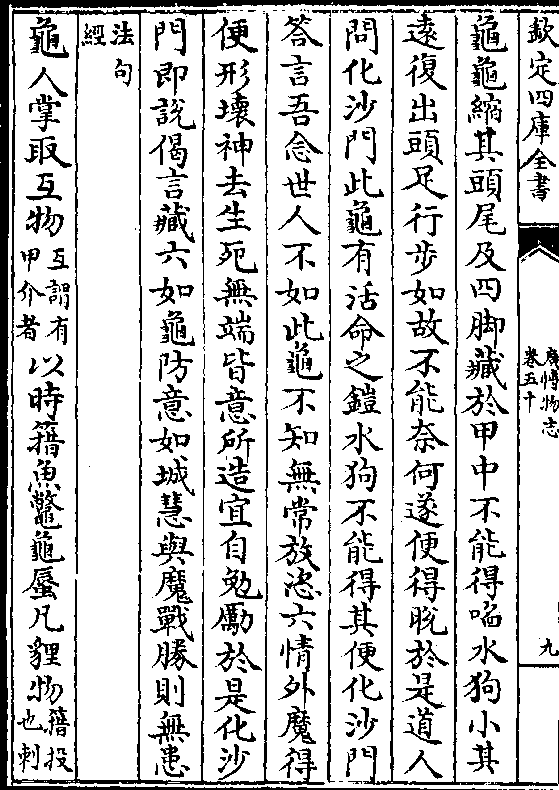 欽定四庫全書
廣博物志
卷五十
九
龜龜縮其頭尾及四脚藏於甲中不能得啗水狗小其
遠復出頭足行步如故不能奈何遂便得脫於是道人
問化沙門此龜有活命之鎧水狗不能得其便化沙門
答言吾念世人不如此龜不知無常放恣六情外魔得
便形壞神去生死無端皆意所造宜自勉勵於是化沙
門即說偈言藏六如龜防意如城慧與魔戰勝則無患
法句
經
龜人掌取互物互謂有
甲介者以時籍魚鼈龜蜃凡貍物籍投
也刺